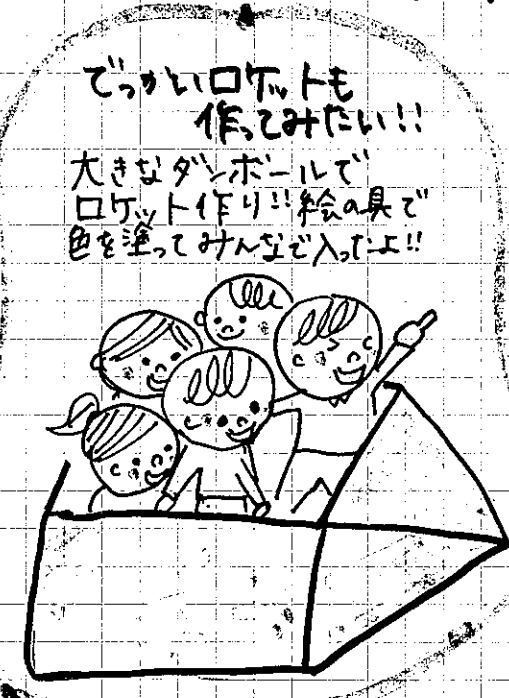 でっかいロケットも
作ってみたい!!
大きなダンボールで
ロケット作り!!絵の具で
色を塗ってみんなで入ったよ!!